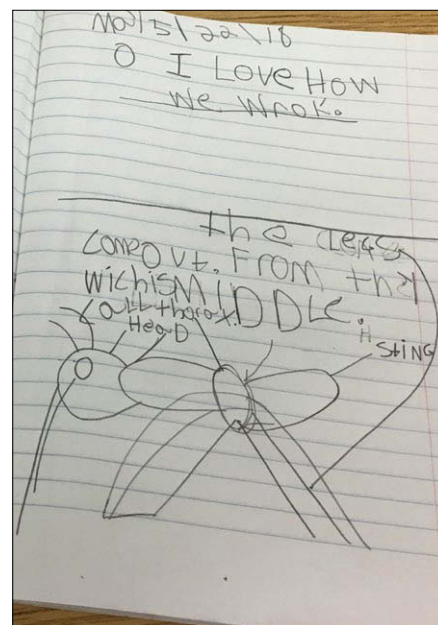 Mo\5\22\18
O I Love How
we wrok.
the Legs
come ovt. From the
wich is MIDDLE.
Call thorax.
HeaD
H
sting